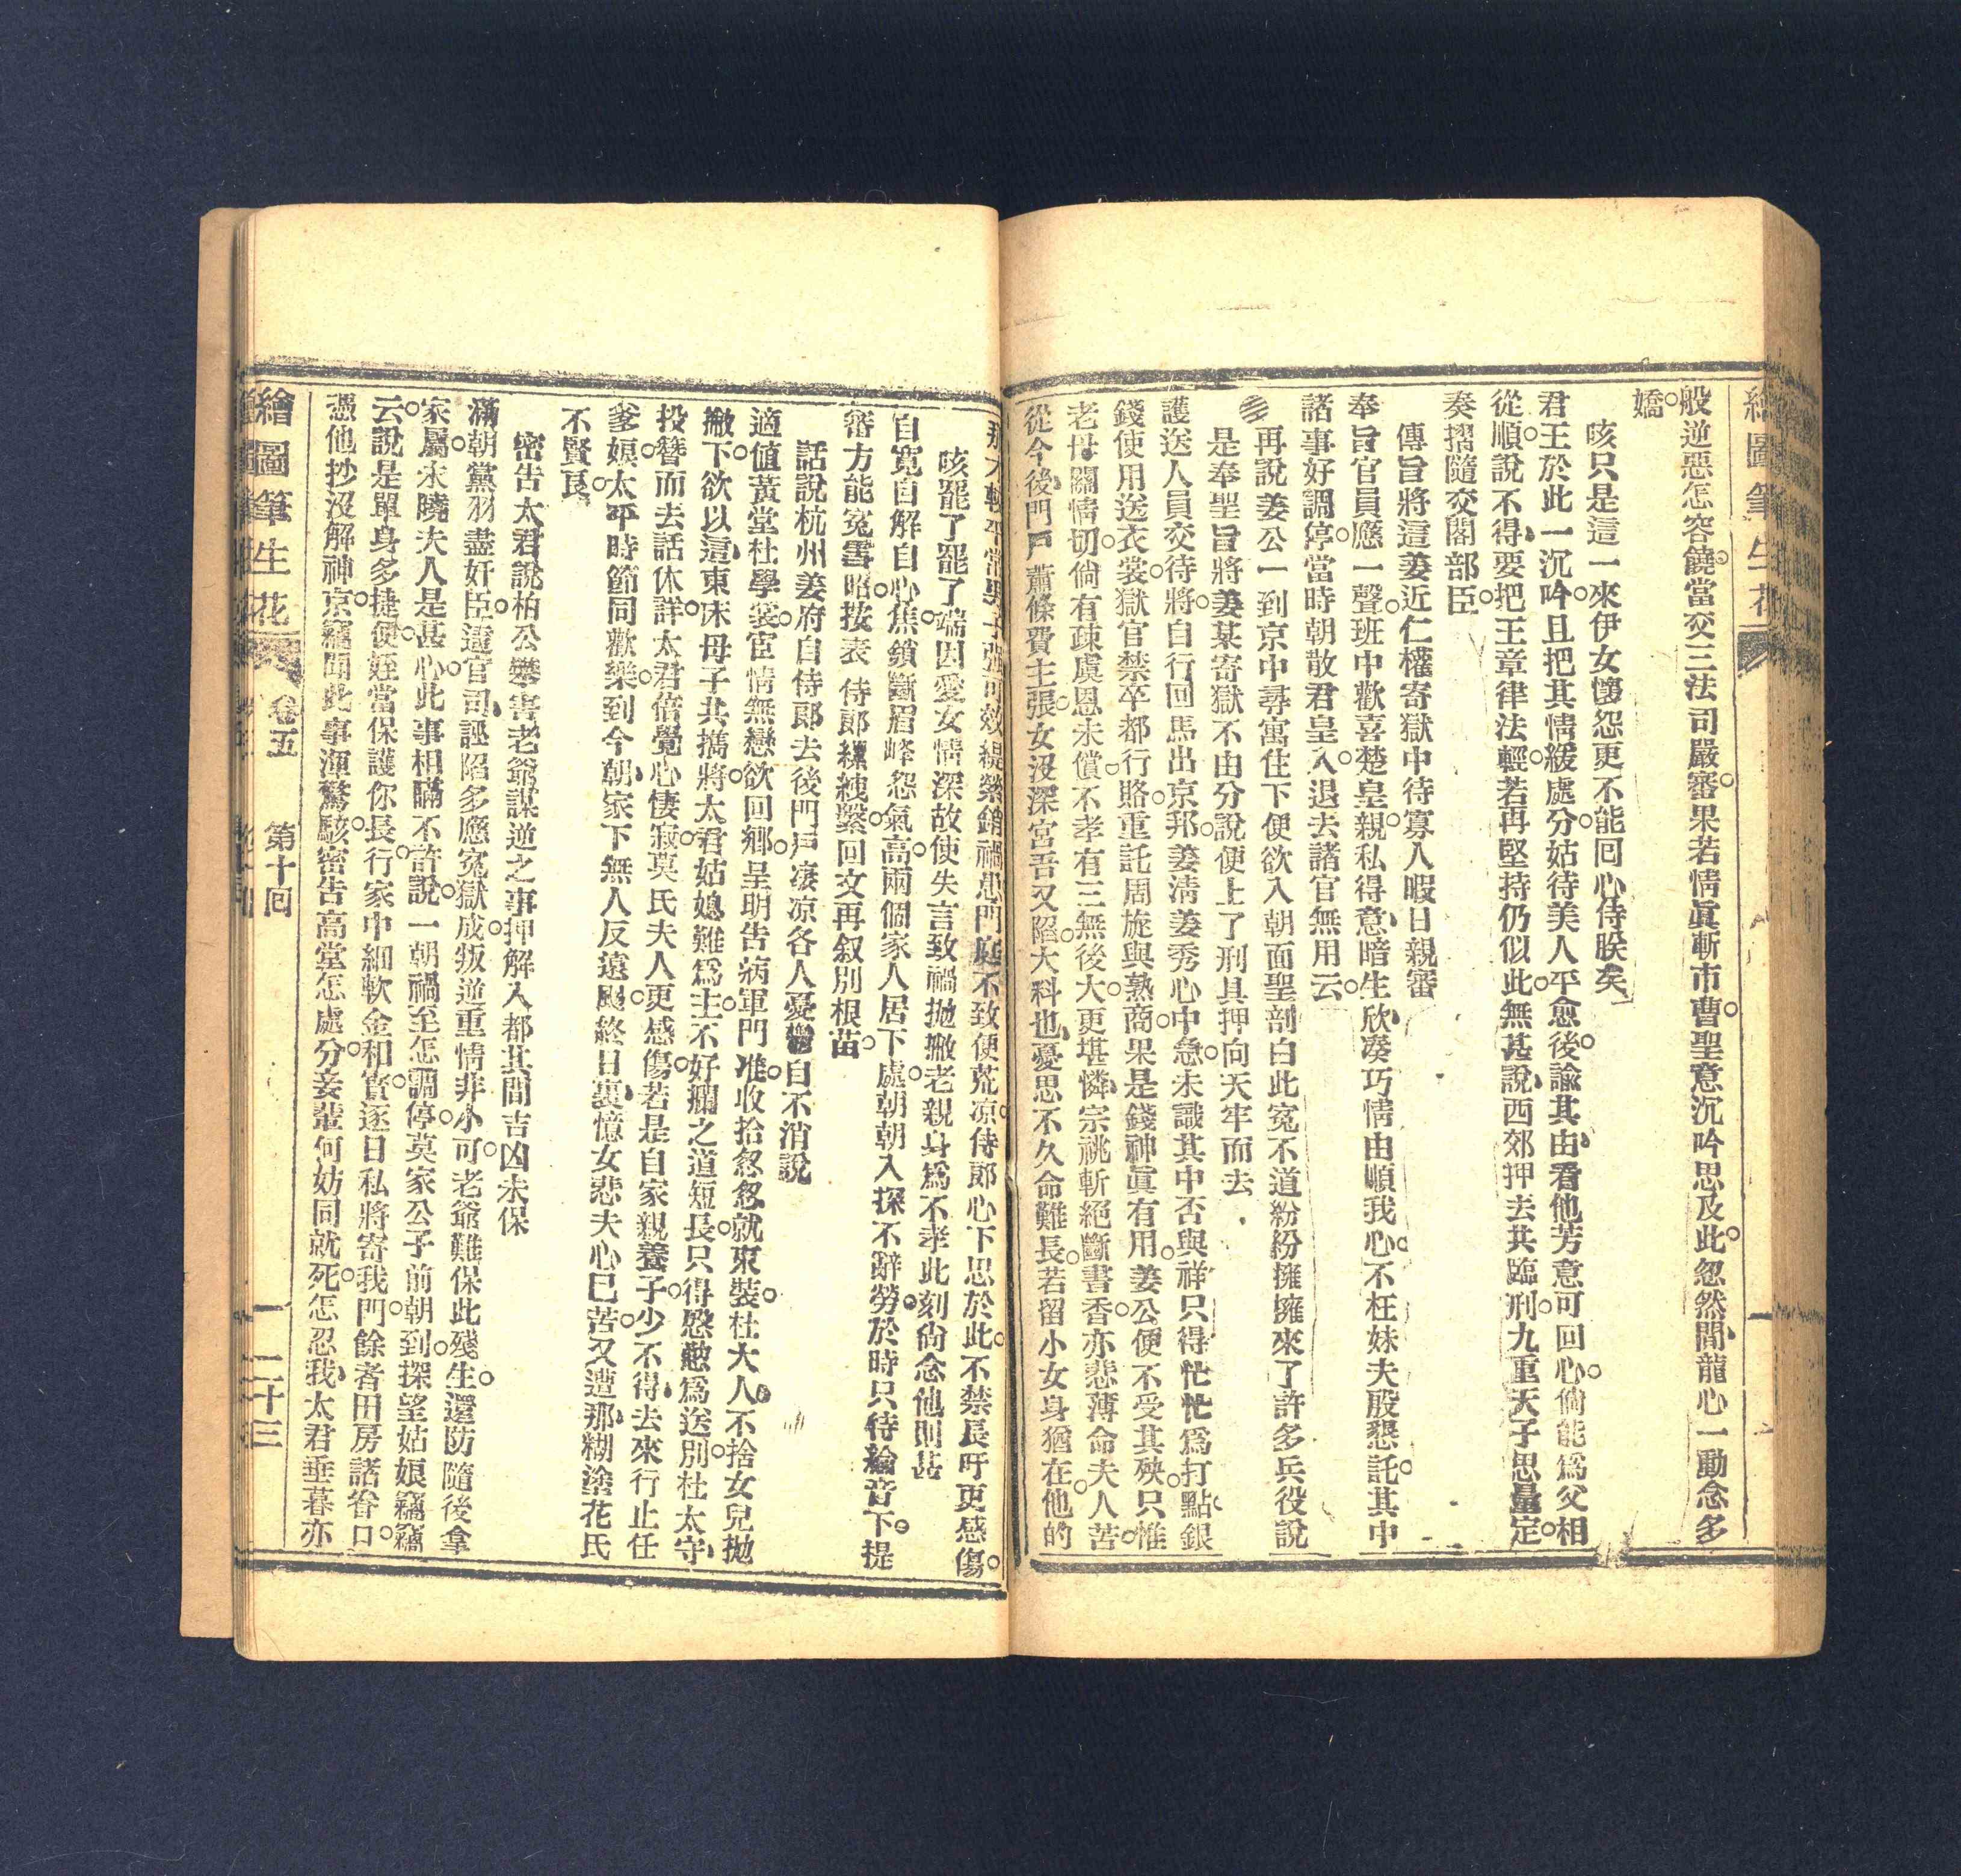 繪圖筆生花
般逆惡怎容饒當交三法司嚴審果若情眞斬市曹聖意沉吟思及此忽然間龍心一動念多
嬌
咳只是這一來伊女懷怨更不能回心侍朕矣
君王於此一沉吟且把其情緩處分姑待美人平愈後諭其由看他芳意可回心倘能爲父相
從順說不得要把王章律法輕若再堅持仍似此無甚說西郊押去其臨刑九重天子思量定
奏摺隨交閣部臣
傳旨將這姜近仁權寄獄中待寡人暇日親審
奉旨官員應一聲班中歡喜楚皇親私得意暗生欣凑巧情由順我心不枉妹夫殷懇託其中
諸事好調停當時朝散君皇入退去諸官無用云
再說姜公一到京中尋寓住下便欲入朝面聖剖白此寃不道紛紛擁擁來了許多兵役說
是奉聖旨將姜某寄獄不由分說便上了刑具押向天牢而去
護送人員交待將自行回馬出京邦姜淸姜秀心中急未識其中否與祥只得忙忙爲打點銀
錢使用送衣裳獄官禁卒都行賂重託周旋與熟商果是錢神眞有用姜公便不受其殃只惟
老母關情切倘有疎虞恩未償不孝有三無後大更堪憐宗祧斬絕斷書香亦悲薄命夫人苦
從今後門戶蕭條費主張女沒深宮吾又陷大科也憂思不久命難長若留小女身猶在他的
不致便荒凉侍郞心下思於此不禁長吁更感傷
咳罷了罷了端因愛女情深故使失言致禍拋撇老親身爲不孝此刻尙念他則甚
自寬自解自心焦鎖斷眉峰怨氣高兩個家人居下處朝朝入探不辭勞於時只待綸音下提
審方能寃雪昭按表侍郞縲絏繫回文再叙別根苗
話說杭州姜府自侍郞去後門戶凄凉各人憂懷自不消說
適値黃堂杜學裘宦情無戀欲回鄉呈明告病軍門准收拾忽忽就束裝杜大人不捨女兒拋
撇下欲以這東床母子共攜將太君姑媳難爲主不好攔之道短長只得慇懃爲送別杜太守
投簪而去話休詳太君倍覺心悽寂莫氏夫人更感傷若是自家親養子少不得去來行止任
爹娘太平時節同歡樂到今朝家下無人反遠颺終日裏憶女悲夫心已苦又遭那糊塗花氏
不賢良
密告太君說柏公攀害老爺謀逆之事押解入都其間吉凶未保
滿朝黨羽盡奸臣遣官司誣陷多應寃獄成叛逆重情非小可老爺難保此殘生還防隨後拿
家屬未曉夫人是甚心此事相瞞不許說一朝禍至怎調停莫家公子前朝到探望姑娘竊竊
云說是單身多捷便姪當保護你長行家中細軟金和寳逐日私將寄我門餘者田房諸眷口
憑他抄沒解神京竊聞此事渾驚駭密告高堂怎處分妾輩何妨同就死怎忍我太君垂暮亦
繪圖筆生花　卷五　第十回　二十三